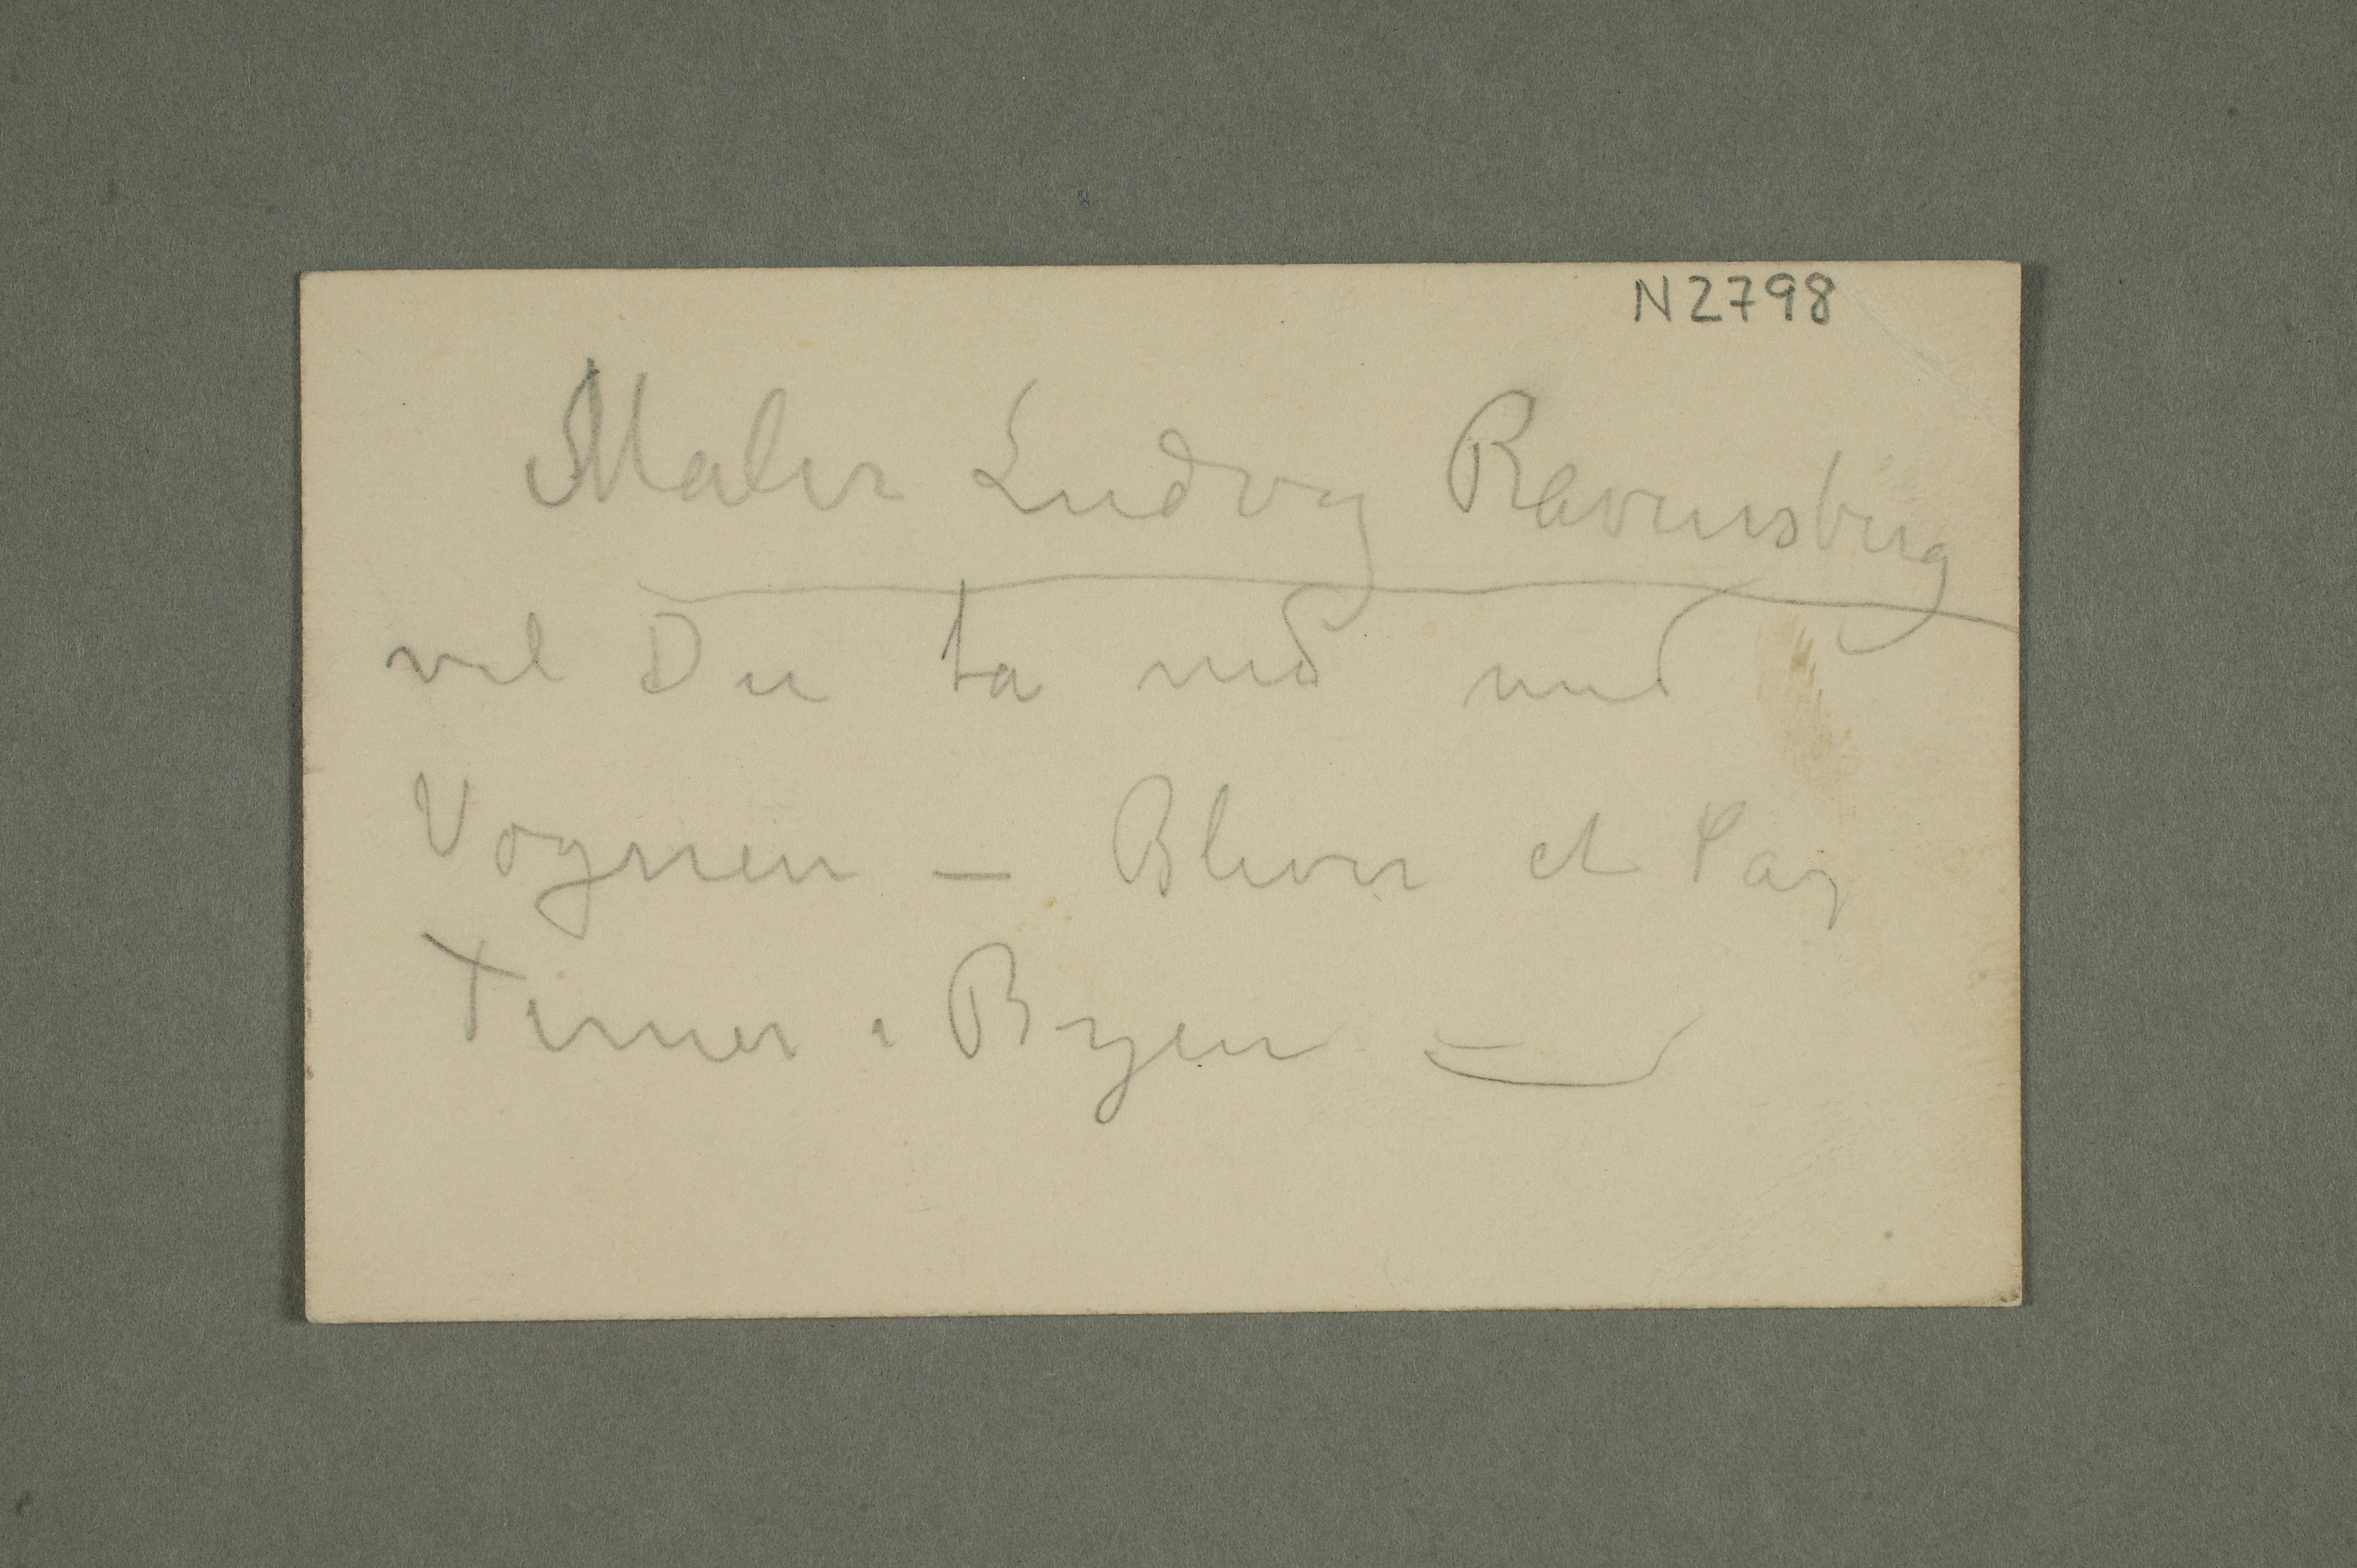 N 2798
Maler Ludvig Ravensberg
vil Du ta ned med
Vognen – Bliver et Par
Timer i Byen –